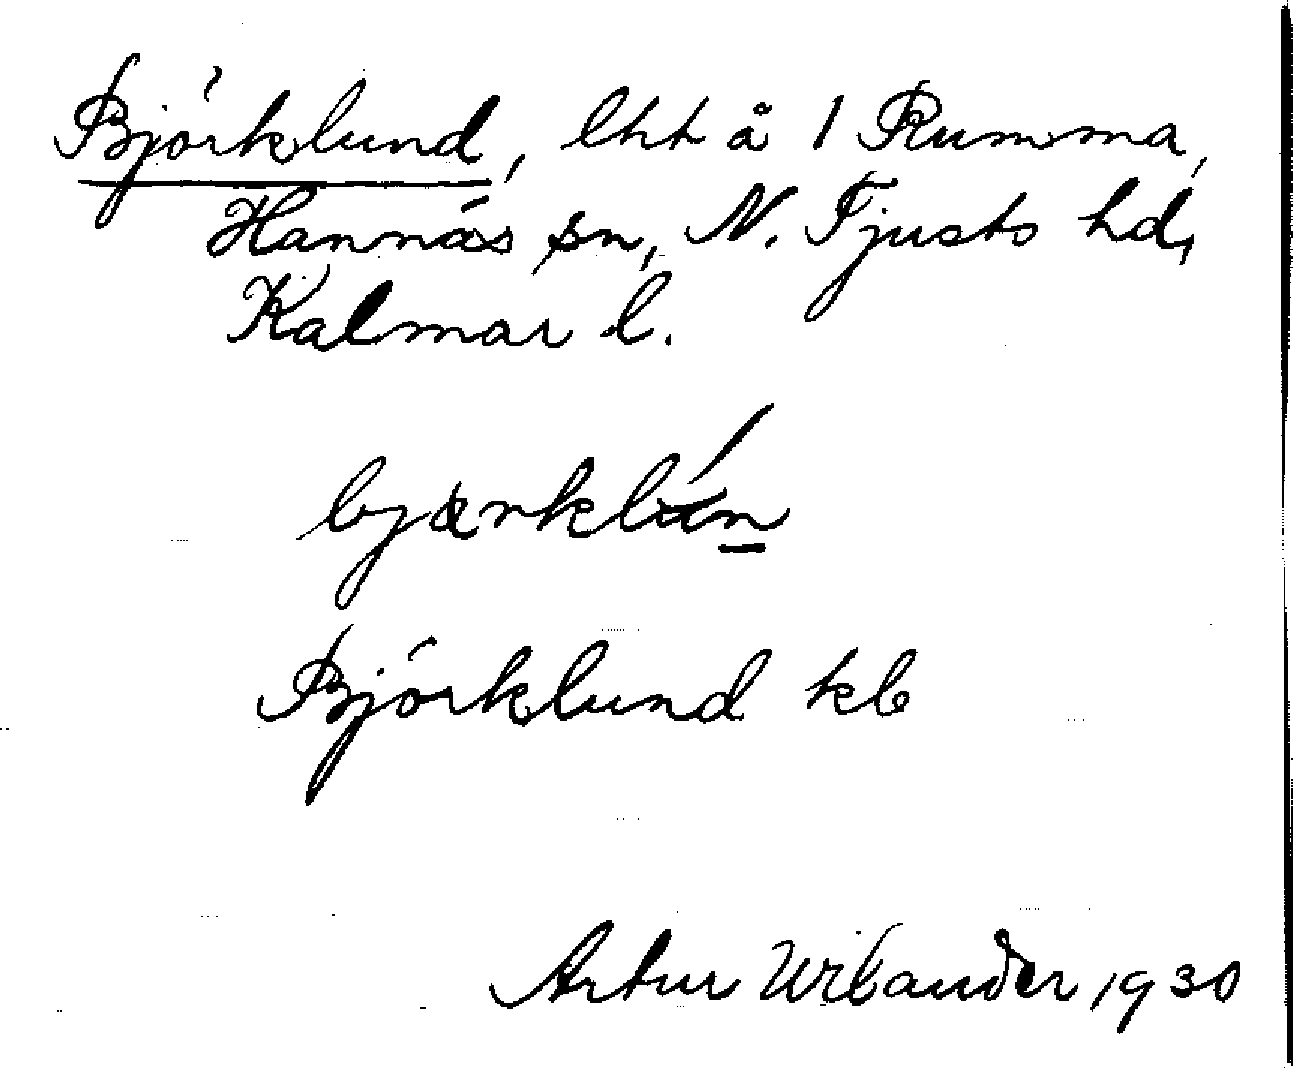 Björklund, lht å 1 Rumma,
Hannäs sn, N. Tjusts hd,
Kalmar l.
bjærklún
Björklund kb
Artur Urbander 1930